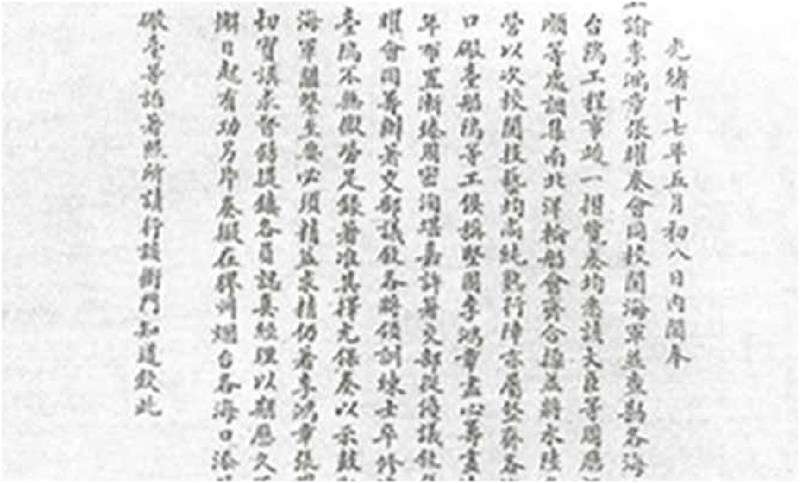 光緒十七年五月初八日內閣奉
上諭李鴻章張曜奏會同校閱海軍並查勘各海
台隖工程事竣一摺覽奏均悉該大臣等周歷
順等處調集南北洋輪船會齊合操並將水陸
營以次校閱技藝均尚純熟行陣亦屬整齊各
口礮臺船隖等工俱稱堅固李鴻章盡心籌畫
年布置漸臻周密洵堪嘉許著交部從優議敘
曜會同籌辦著交部議敘各將領訓練士卒修
臺隖不無微勞足錄著准其擇尤保奏以示鼓
海軍關繫至要必須精益求精仍著李鴻章張
切實講求督飭提鎮各員認真經理以期歷久
懈日起有功另片奏擬在膠州煙台各海口添
礮臺等語著照所請行該衙門知道欽此